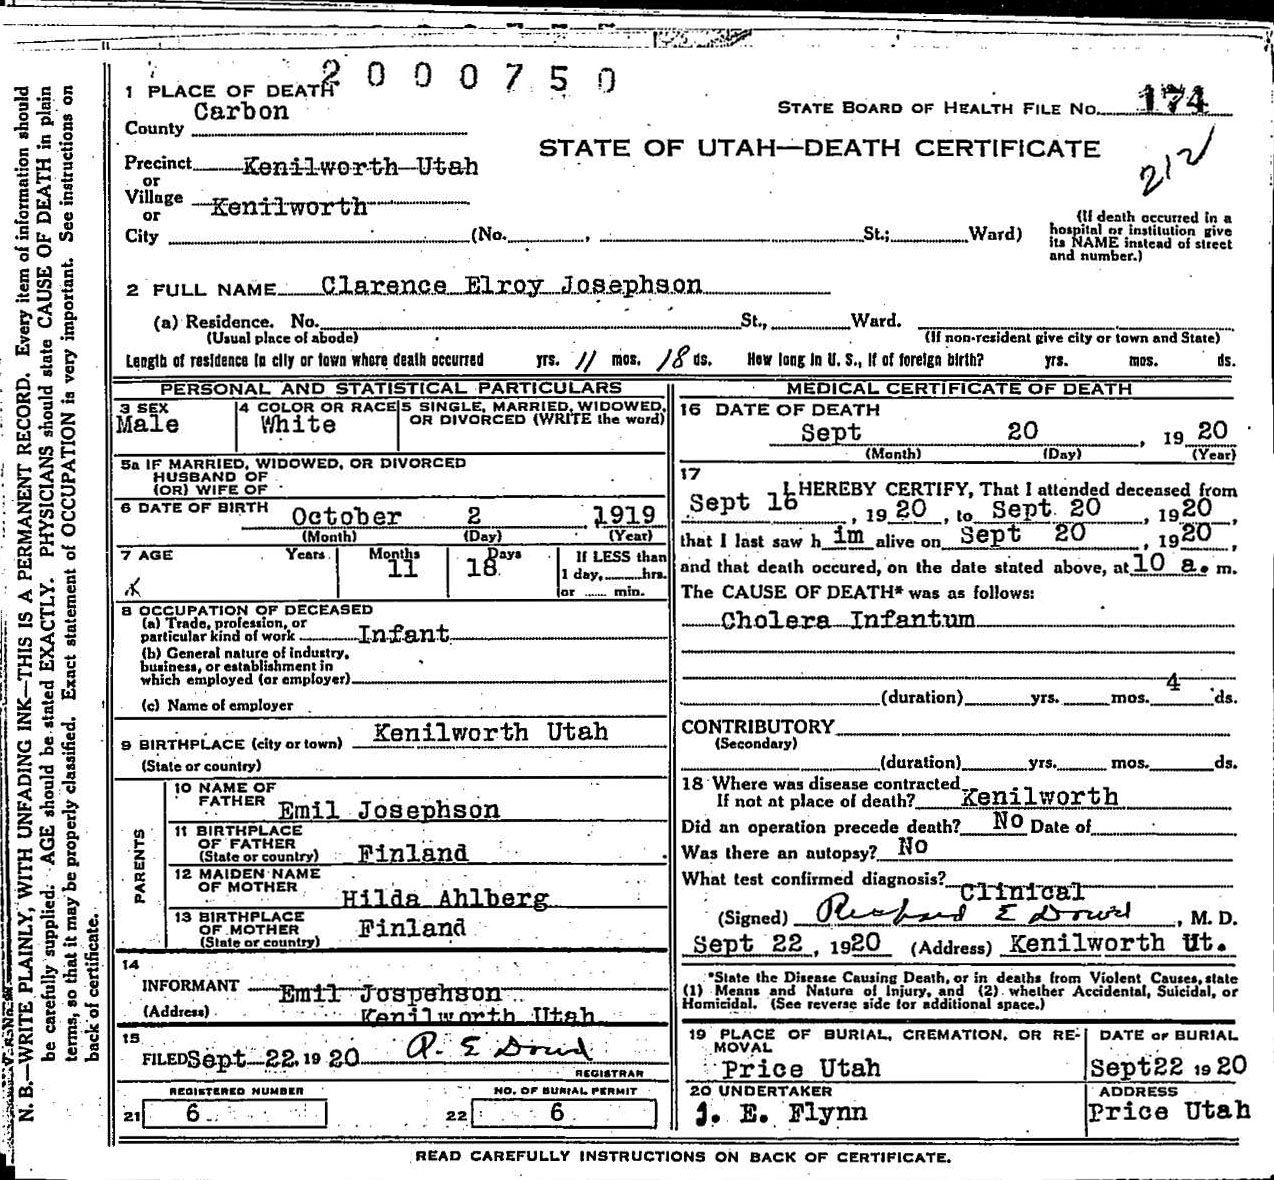 2000750
1 PLACE OF DEATH
STATE BOARD OF HEALTH FILE No. 174
County Carbon
STATE OF UTAH—DEATH CERTIFICATE
212
Precinct Kenilworth Utah
or
Village Kenilworth
or
City (No. , St.; Ward)
(If death occurred in a
hospital or institution give
its NAME instead of street
and number.)
2 FULL NAME Clarence Elroy Josephson
(a) Residence. No. St., Ward.
(Usual place of abode)
(If non-resident give city or town and State)
Length of residence in city or town where death occurred yrs. 11 mos. 18 ds. How long in U. S., if of foreign birth? yrs. mos. ds.
PERSONAL AND STATISTICAL PARTICULARS
3 SEX
Male
4 COLOR OR RACE
White
5 SINGLE, MARRIED, WIDOWED,
OR DIVORCED (WRITE the word)
5a IF MARRIED, WIDOWED, OR DIVORCED
HUSBAND OF
(OR) WIFE OF
6 DATE OF BIRTH October 2 , 1919
(Month) (Day) (Year)
7 AGE Years Months Days If LESS than
11 18 1 day, hrs.
or min.
8 OCCUPATION OF DECEASED
(a) Trade, profession, or
particular kind of work Infant
(b) General nature of industry,
business, or establishment in
which employed (or employer)
(c) Name of employer
9 BIRTHPLACE (city or town) Kenilworth Utah
(State or country)
PARENTS
10 NAME OF
FATHER Emil Josephson
11 BIRTHPLACE
OF FATHER
(State or country) Finland
12 MAIDEN NAME
OF MOTHER Hilda Ahlberg
13 BIRTHPLACE
OF MOTHER
(State or country) Finland
14
INFORMANT Emil Jospehson
(Address) Kenilworth Utah
15
FILED Sept 22, 1920 R. E Dowd
REGISTRAR
REGISTERED NUMBER
21 6
NO. OF BURIAL PERMIT
22 6
MEDICAL CERTIFICATE OF DEATH
16 DATE OF DEATH
Sept 20 , 1920
(Month) (Day) (Year)
17
I HEREBY CERTIFY, That I attended deceased from
Sept 16 , 1920 , to Sept 20 , 1920 ,
that I last saw h im alive on Sept 20 , 1920 ,
and that death occured, on the date stated above, at 10 a. m.
The CAUSE OF DEATH* was as follows:
Cholera Infantum
(duration) yrs. mos. 4 ds.
CONTRIBUTORY
(Secondary)
(duration) yrs. mos. ds.
18 Where was disease contracted
If not at place of death? Kenilworth
Did an operation precede death? No Date of
Was there an autopsy? No
What test confirmed diagnosis? Clinical
(Signed) Richard E Dowd , M. D.
Sept 22 , 1920 (Address) Kenilworth Ut.
*State the Disease Causing Death, or in deaths from Violent Causes, state
(1) Means and Nature of Injury, and (2) whether Accidental, Suicidal, or
Homicidal. (See reverse side for additional space.)
19 PLACE OF BURIAL, CREMATION, OR RE-
MOVAL
Price Utah
DATE OF BURIAL
Sept 22 1920
20 UNDERTAKER
J. E. Flynn
ADDRESS
Price Utah
READ CAREFULLY INSTRUCTIONS ON BACK OF CERTIFICATE.
N. B.—WRITE PLAINLY, WITH UNFADING INK—THIS IS A PERMANENT RECORD. Every item of information should
be carefully supplied. AGE should be stated EXACTLY. PHYSICIANS should state CAUSE OF DEATH in plain
terms, so that it may be properly classified. Exact statement of OCCUPATION is very important. See instructions on
back of certificate.